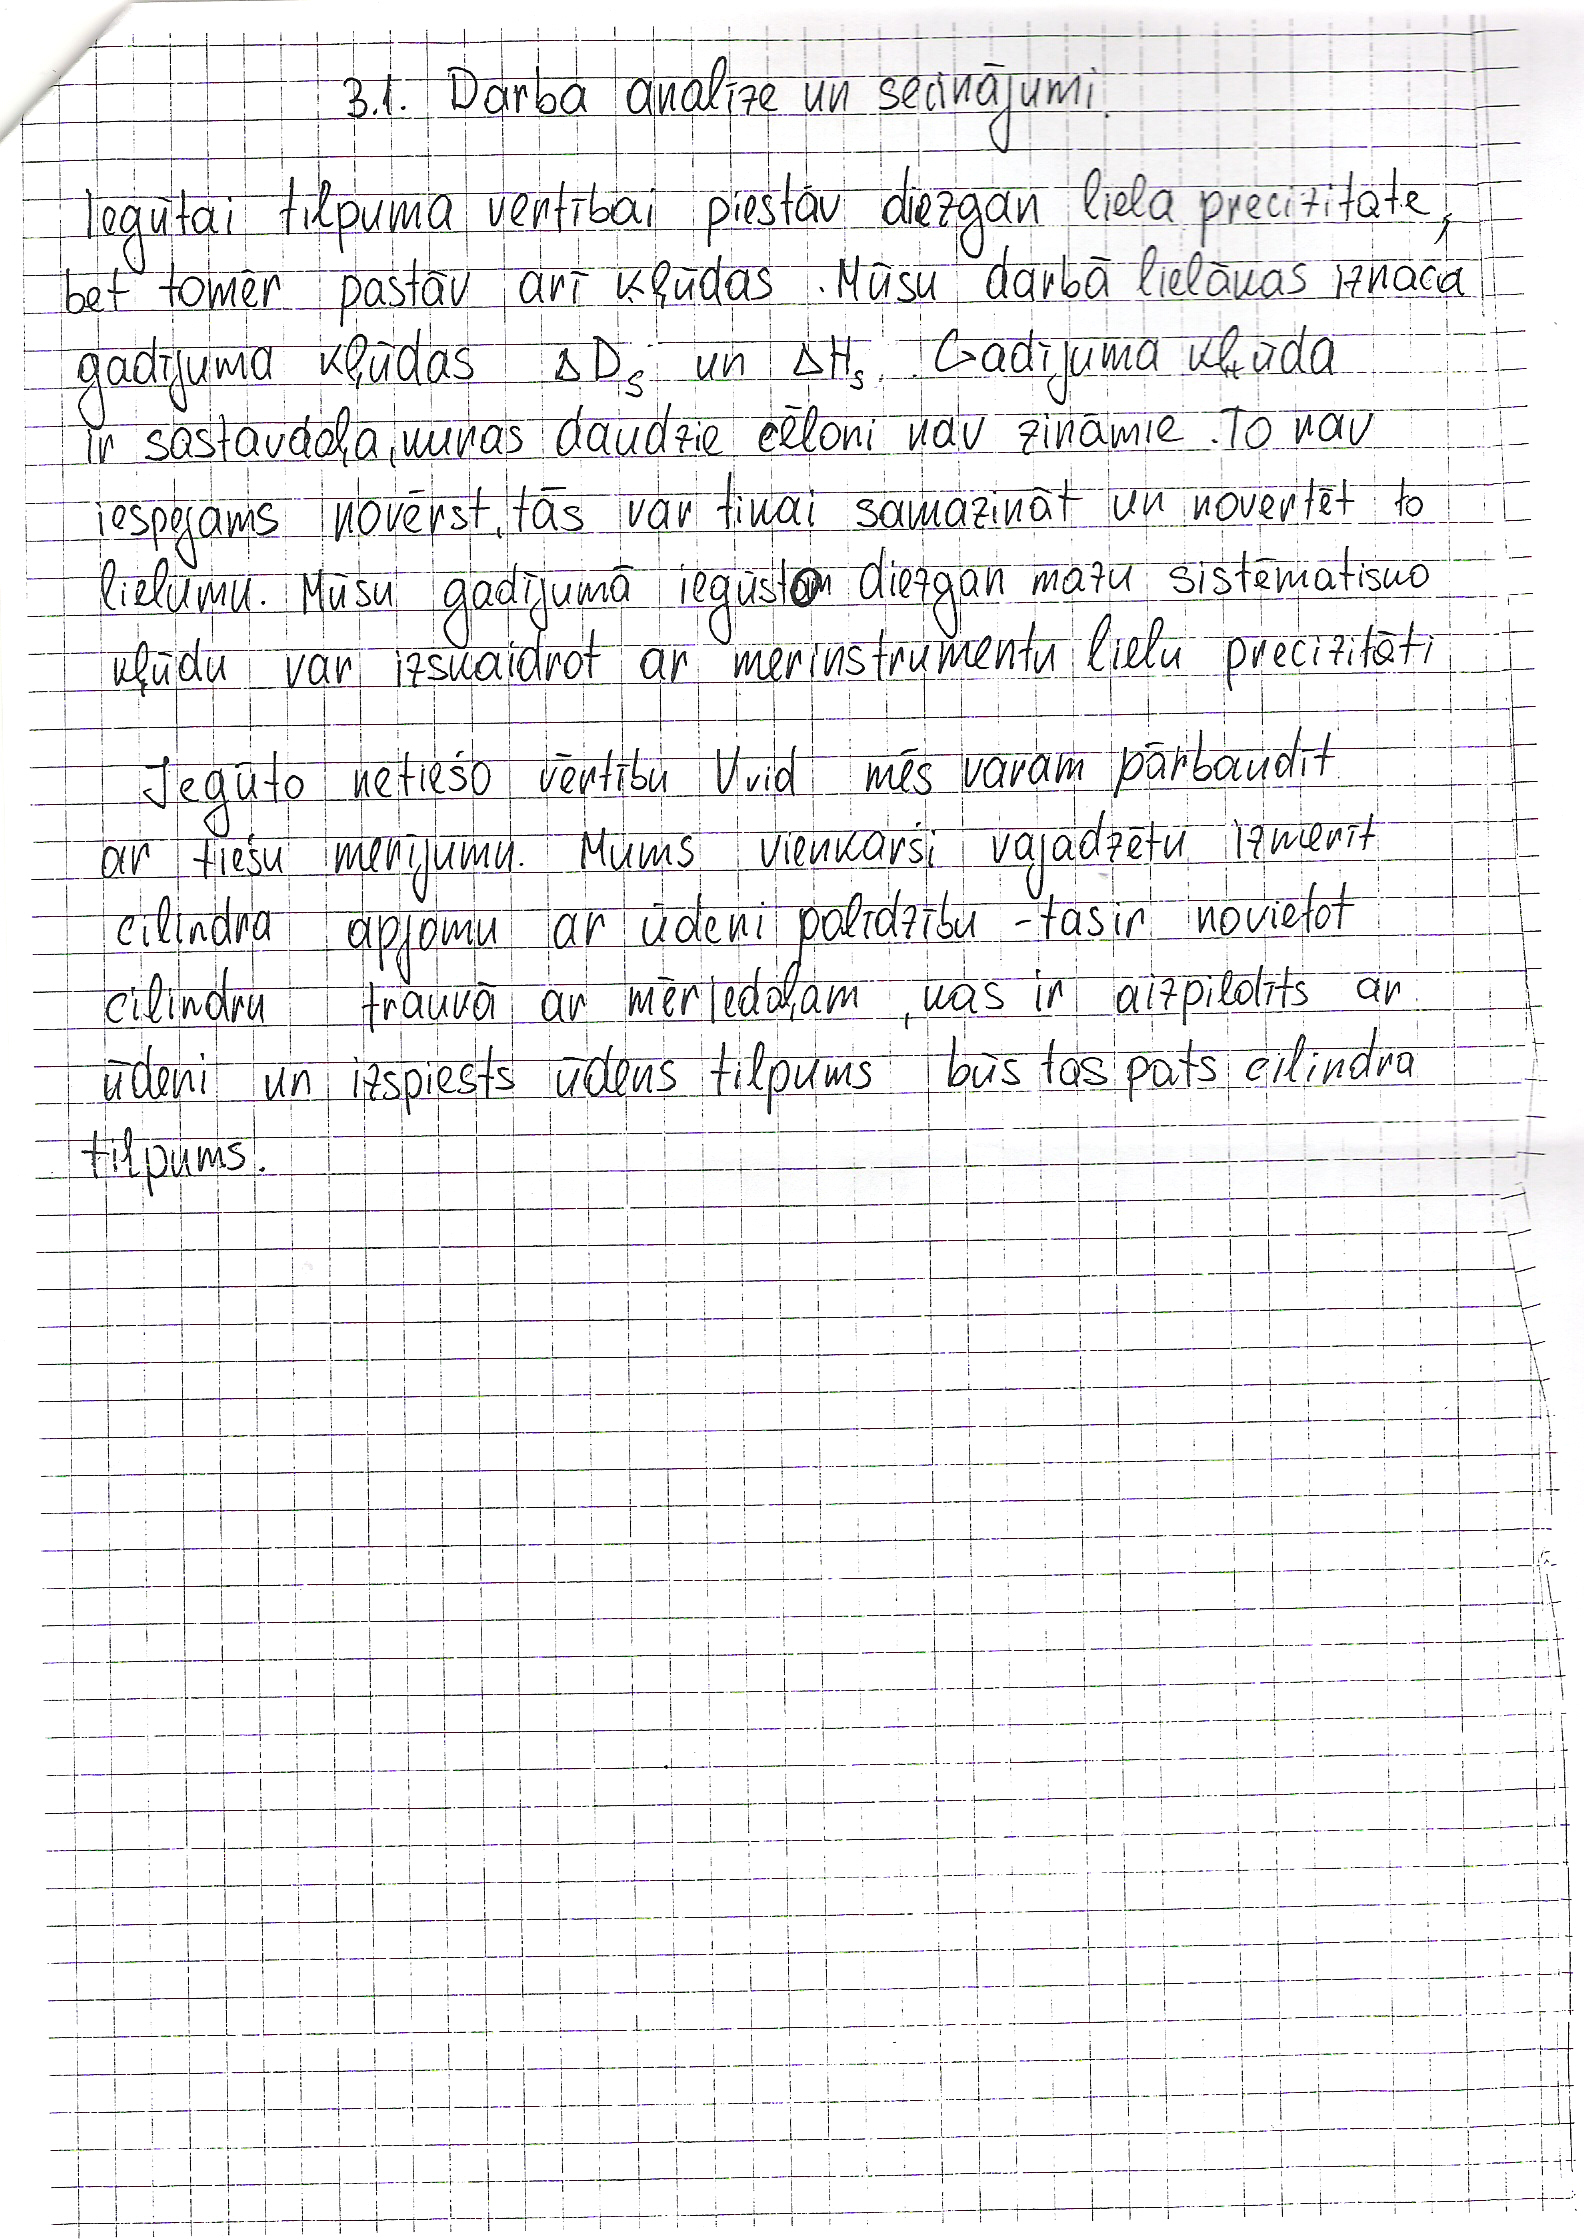 3.1. Darba analīze un secinājumi.
Iegūtai tilpuma vērtībai piestāv diezgan liela precizitāte,
bet tomēr pastāv arī kļūdas. Mūsu darbā lielākas iznāca
gadījuma kļūdas ΔDs un ΔHs. Gadījuma kļūda
ir sastāvdaļa, kuras daudzie cēloņi nav zināmie. To nav
iespējams novērst, tās var tikai samazināt un novērtēt to
lielumu. Mūsu gadījumā iegūstam diezgan mazu sistēmatisko
kļūdu var izskaidrot ar mērinstrumentu lielu precizitāti
Iegūto netiešo vērtību Vvid mēs varam pārbaudīt
ar tiešu mērījumu. Mums vienkārši vajadzētu izmērīt
cilindra apjomu ar ūdeni palīdzību - tas ir novietot
cilindru traukā ar mēriedaļam, kas ir aizpildīts ar
ūdeni un izspiests ūdens tilpums būs tas pats cilindra
tilpums.